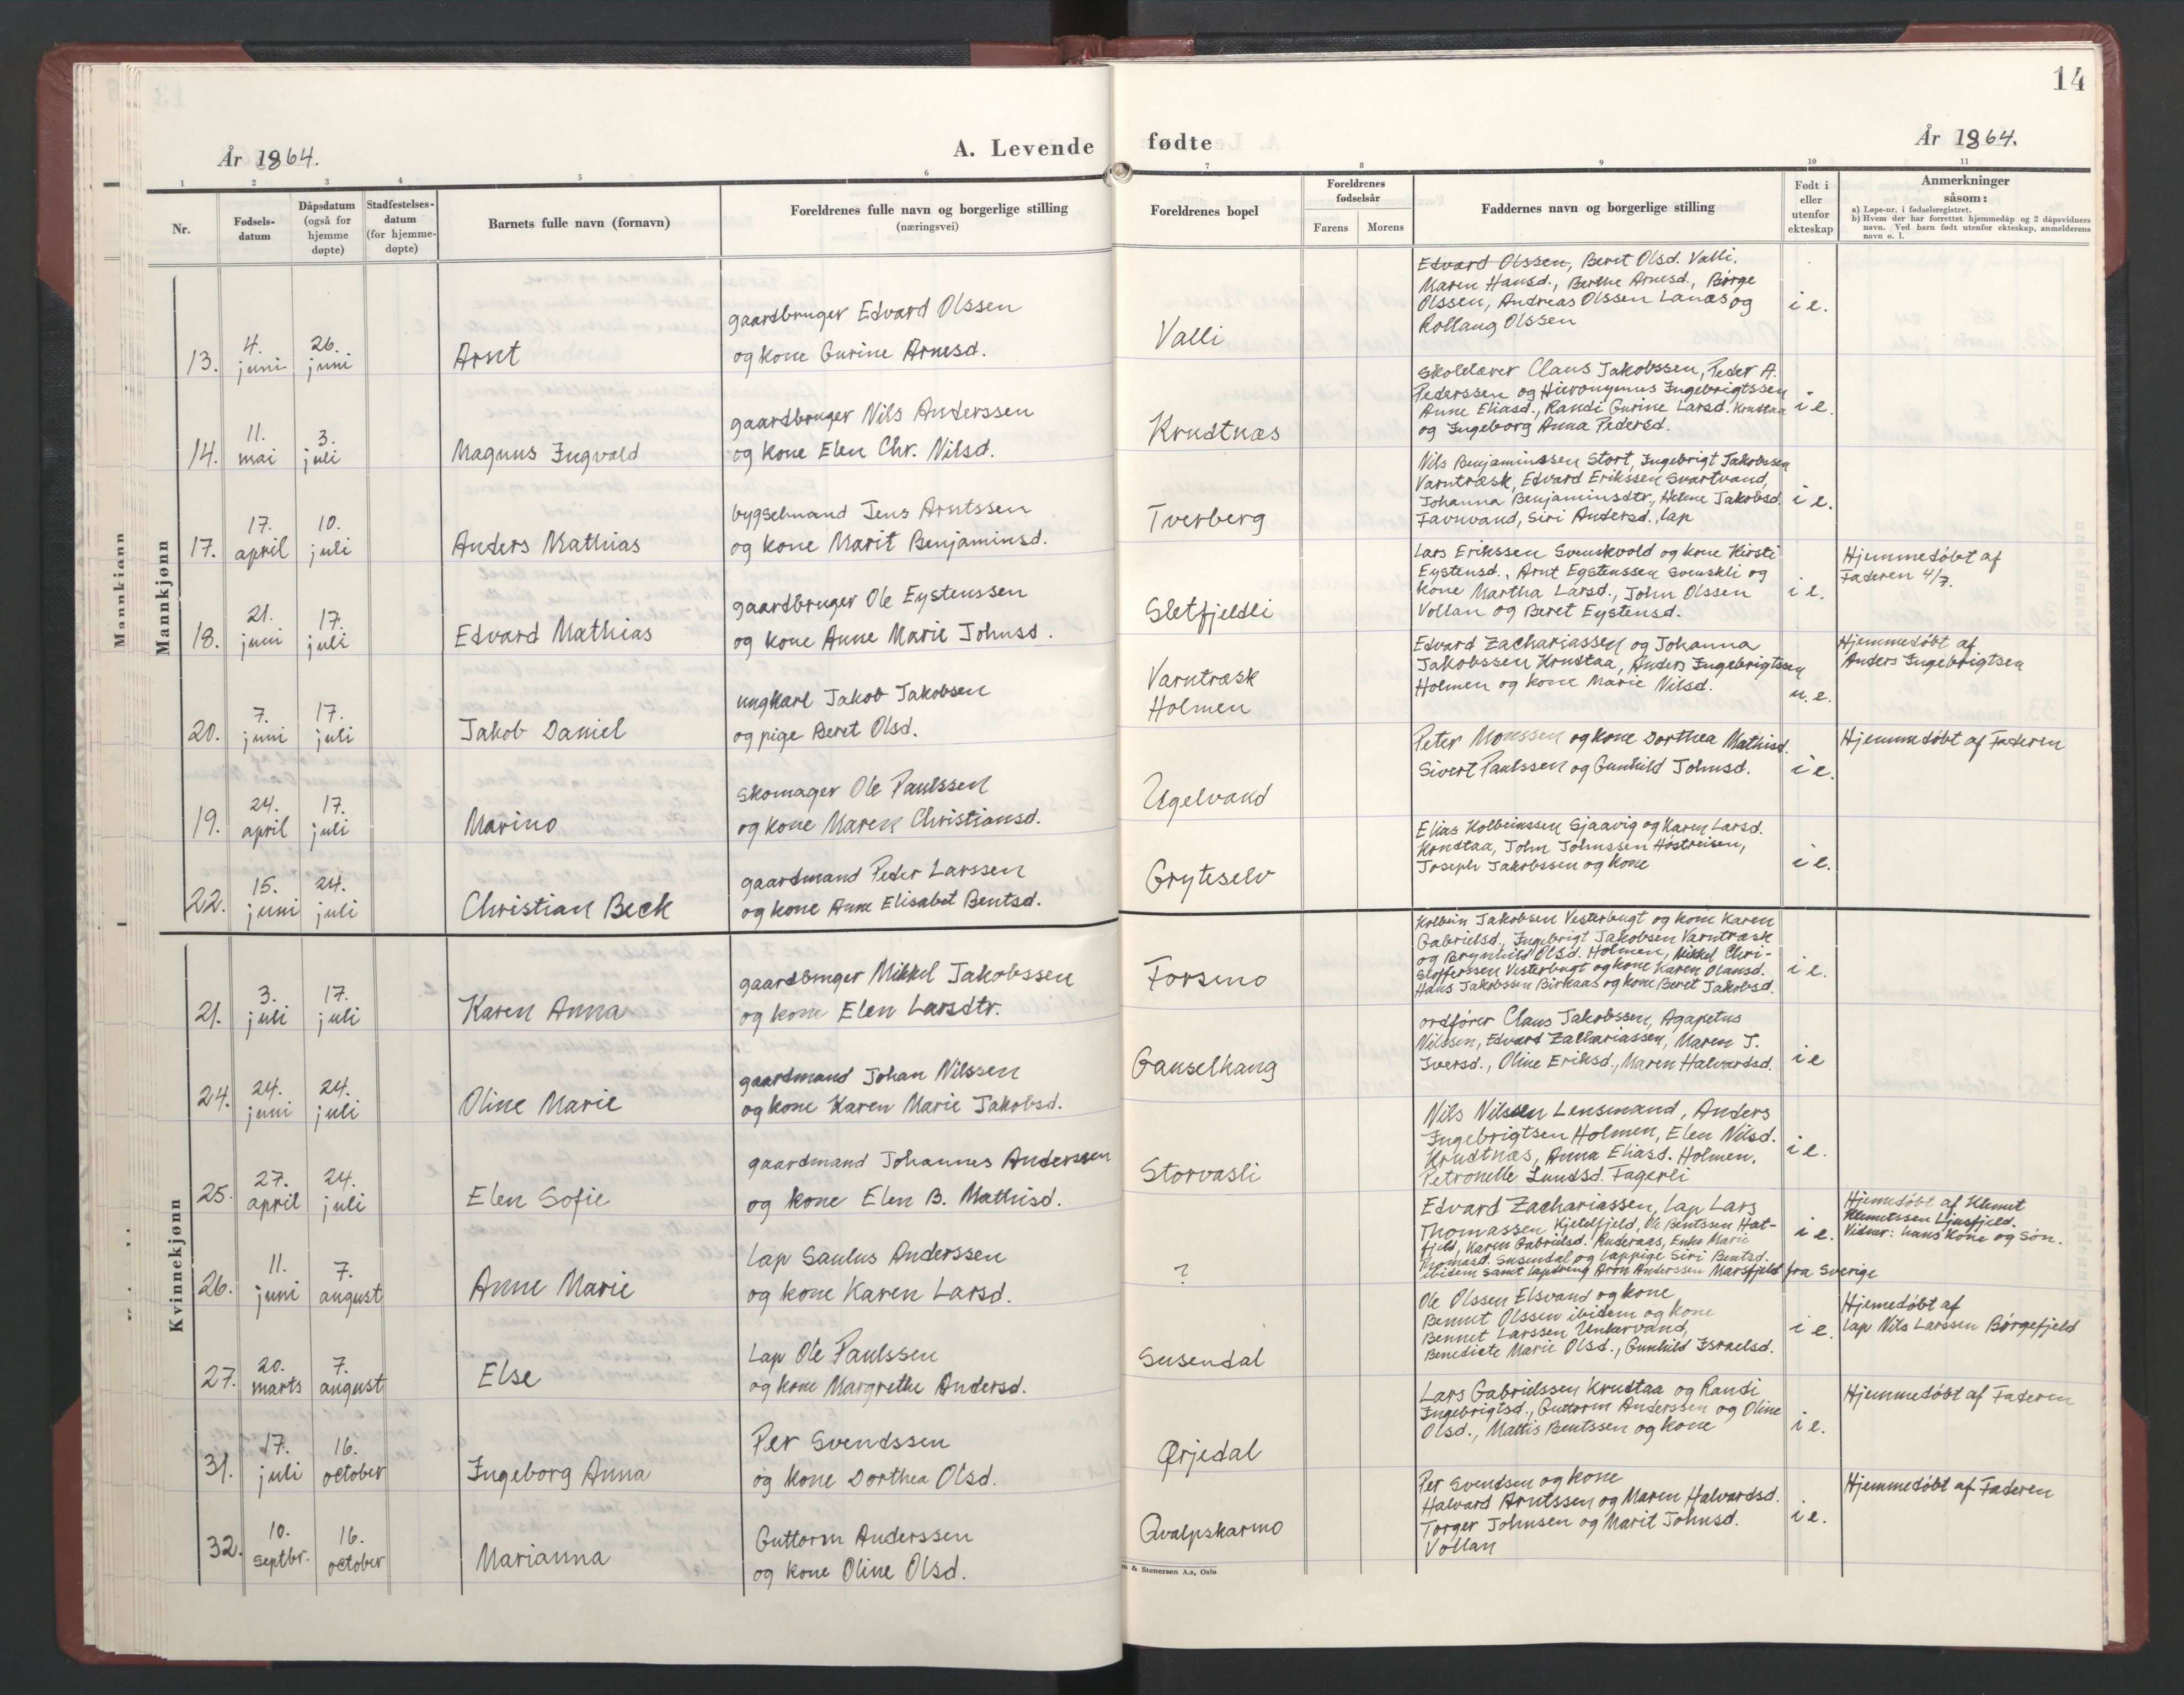 14
År 1864.
A. Levende
fødte
År 1864.
1 2 3 4 5 6 7 8 9 10 11
Nr.
Fødsels-
datum
Dåpsdatum
(også for
hjemme
døpte)
Stadfestelses-
datum
(for hjemme-
døpte)
Barnets fulle navn (fornavn)
Foreldrenes fulle navn og borgerlige stilling
(næringsvei)
Foreldrenes bopel
Foreldrenes
fødselsår
Farens Morens
Faddernes navn og borgerlige stilling
Født i
eller
utenfor
ekteskap
Anmerkninger
såsom:
a) Løpe-nr. i fødselsregistret.
b) Hvem der har forrettet hjemmedåp og 2 dåpsvidners
navn. Ved barn født utenfor ekteskap, anmelderens
navn o. l.
Mannkjønn
Mannkjønn
13.
4.
juni
26.
juni
Arnt
gaardbruger Edvard Olssen
og kone Gurine Arnesd.
Valli
Edvard Olssen, Beret Olsd. Valli.
Maren Hansd., Berthe Arnesd., Børge
Olssen, Andreas Olssen Lanæs og
Rollaug Olssen
i e.
14.
11.
mai
3.
juli
Magnus Ingvald
gaardbruger Nils Anderssen
og kone Elen Chr. Nilsd.
Krudtnæs
Skolelærer Claus Jakobssen, Peder A.
Pederssen og Hieronymus Ingebrigtssen
Anne Eliasd., Randi Gurine Larsd. Krudtaa
og Ingeborg Anna Pedersd.
i e.
17.
17.
april
10.
juli
Anders Mathias
bygselmand Jens Arntssen
og kone Marit Benjaminsd.
Tverberg
Nils Benjaminssen Stort, Ingebrigt Jakobssen
Varntræsk, Edvard Erikssen Svartvand,
Johanna Benjaminsdtr., Helene Jakobsd.
Favnvand, Siri Andersd., lap
i e.
18.
21.
juni
17.
juli
Edvard Mathias
gaardbruger Ole Eystenssen
og kone Anne Marie Johnsd.
Sletfjeldli
Lars Erikssen Svenskvold og kone Kirsti
Eystensd., Arnt Eystenssen Svenskli og
kone Martha Larsd., John Olssen
Vollan og Beret Eystensd.
i e.
Hjemmedøbt af
Faderen 4/7.
20.
7.
juni
17.
juli
Jakob Daniel
ungkarl Jakob Jakobsen
og pige Beret Olsd.
Varntræsk
Holmen
Edvard Zachariassen og Johanna
Jakobssen Krudtaa, Anders Ingebrigtssen
Holmen og kone Marie Nilsd.
u. e.
Hjemmedøbt af
Anders Ingebrigtsen
19.
24.
april
17.
juli
Marino
Skomager Ole Paulssen
og kone Maren Christiansd.
Ugelvand
Peter Monssen og kone Dorthea Mathisd.
Sivert Paulssen og Gunhild Johnsd.
i e.
Hjemmedøbt af Faderen
22.
15.
juni
24.
juli
Christian Beck
gaardmand Peder Larssen
og kone Anne Elisabet Bentsd.
Grytselv
Elias Holbeinssen Sjaavig og Karen Larsd.
Krudtaa, John Johnssen Høstreisen,
Joseph Jakobssen og kone
i e.
Kvinnekjønn
21.
3.
juli
17.
juli
Karen Anna
gaardbruger Mikkel Jakobssen
og kone Elen Larsdtr.
Forsmo
Kolbein Jakobsen Vesterbugt og kone Karen
Gabrielsd., Ingebrigt Jakobsen Varntræsk
og Brynhild Olsd. Holmen, Mikkel Chri-
stofferssen Vesterbugt og kone Karen Olausd.
Hans Jakobssen Birkaas og kone Beret Jakobsd.
i e.
24.
24.
juni
24.
juli
Oline Marie
gaardmand Johan Nilssen
og kone Karen Marie Jakobsd.
Ganselhaug
ordfører Claus Jakobssen, Agapetus
Nilssen, Edvard Zachariassen, Maren J.
Iversd., Oline Eriksd., Maren Halvardsd.
i e
25.
27.
april
24.
juli
Elen Sofie
gaardmand Johannes Anderssen
og kone Elen B. Mathisd.
Storvasli
Nils Nilssen Lensmand, Anders
Ingebrigtsen Holmen, Elen Nilsd.
Krudtnæs, Anna Eliasd. Holmen.
Petronelle Lundsd. Fagerli
i e.
26.
11.
juni
7.
august
Anne Marie
Lap Saulus Anderssen
og kone Karen Larsd.
?
Edvard Zachariassen, Lap Lars
Thomassen Kjeldfjeld, Ole Bentssen Hat-
fjeld, Karen Gabrielsd. Ruderaas, Enke Marie
Thomasd. Susendal og Lappige Siri Bentsd.
ibidem samt lapdreng Aron Anderssen Marsfjeld fra Sverige
i e.
Hjemedøbt af Klemet
Klemetssen Ljusfjeld.
Vidner: hans kone og søn.
27.
20.
marts
7.
august
Else
Lap Ole Paulssen
og kone Margrethe Andersd.
Susendal
Ole Olssen Elsvand og kone
Bennet Olssen ibidem og kone
Bennet Larssen Unkervand,
Benedicte Marie Olsd., Gunhild Israelsd.
i e.
Hjemedøbt af
Lap Nils Larssen Børgefjeld
31.
17.
juli
16.
october
Ingeborg Anna
Per Svendssen
og kone Dorthea Olsd.
Ørjedal
Lars Gabrielssen Krudtaa og Randi
Ingebrigtsd., Guttorm Anderssen og Oline
Olsd., Mattis Bentssen og kone
i e.
Hjemmedøbt af Faderen
32.
10.
septbr.
16.
october
Marianna
Guttorm Anderssen
og kone Oline Olsd.
Qvalpskarmo
Per Svendsen og kone
Halvard Arntssen og Maren Halvardsd.
Torger Johnsen og Marit Johnsd.
Vollan
i e.
Hjemmedøbt af Faderen
& Stenersen A.s, Oslo